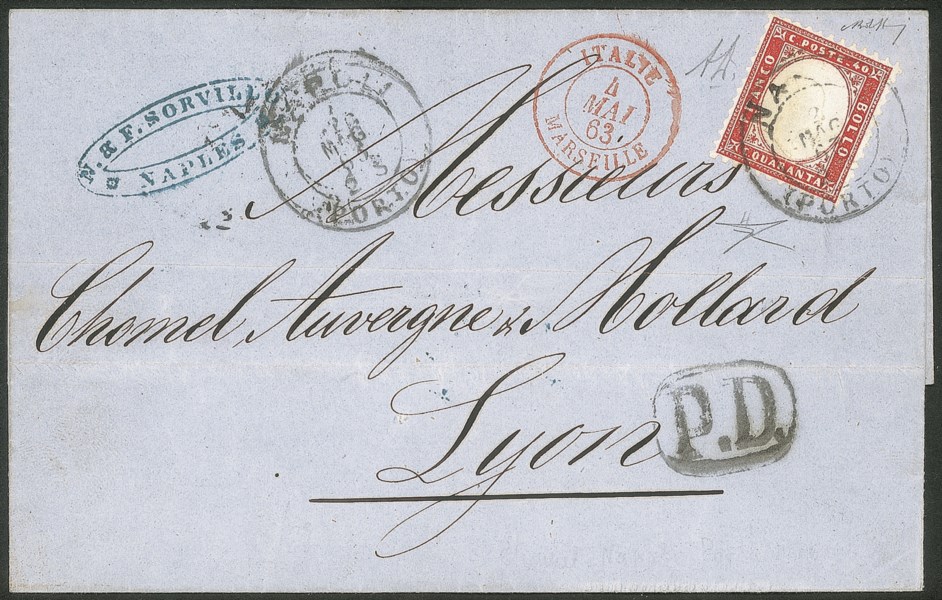 N. & F. SORVILLO
NAPLES
NAPOLI
MAG
63
(PORTO)
ITALIE
4
MAI
63
MARSEILLE
C. POSTE. 40
FRANCO
BOLLO
C. QUARANTA
NA
2
MAG
(PORTO)
Messieurs
Chomel, Auvergne & Mollard
Lyon
P.D.